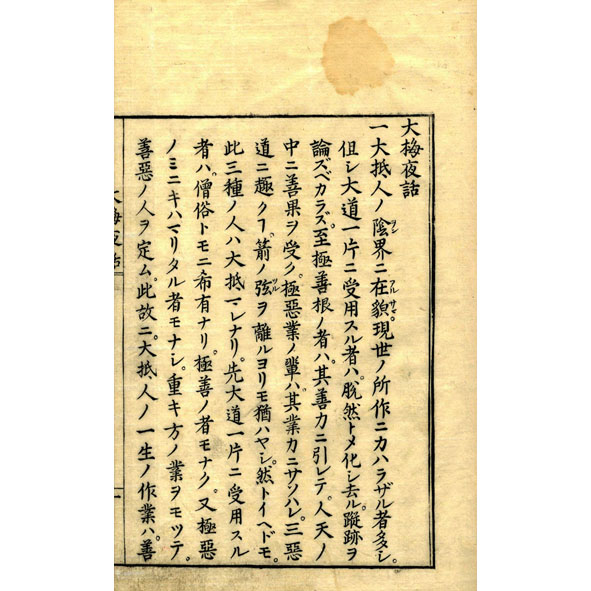 大梅夜話
一大抵人ノ陰界ニ在貌。現世ノ所作ニカハラザル者多シ。
但シ大道一片ニ受用スル者ハ。脱然トメ化シ去ル。蹤跡ヲ
論ズベカラズ。至極善根ノ者ハ。其善力ニ引レテ。人天ノ
中ニ善果ヲ受ク。極惡業ノ輩ハ。其業力ニサソハレ。三惡
道ニ趣クフ。箭ノ弦ヲ離ルヨリモ猶ハヤシ。然トイヘドモ。
此三種ノ人ハ大抵マレナリ。先大道一片ニ受用スル
者ハ。僧俗トモニ希有ナリ。極善ノ者モナク。又極惡
ノミニキハマリタル者モナシ。重キ方ノ業ヲモツテ。
善惡ノ人ヲ定ム。此故ニ。大抵人ノ一生ノ作業ハ。善
大梅夜話
一